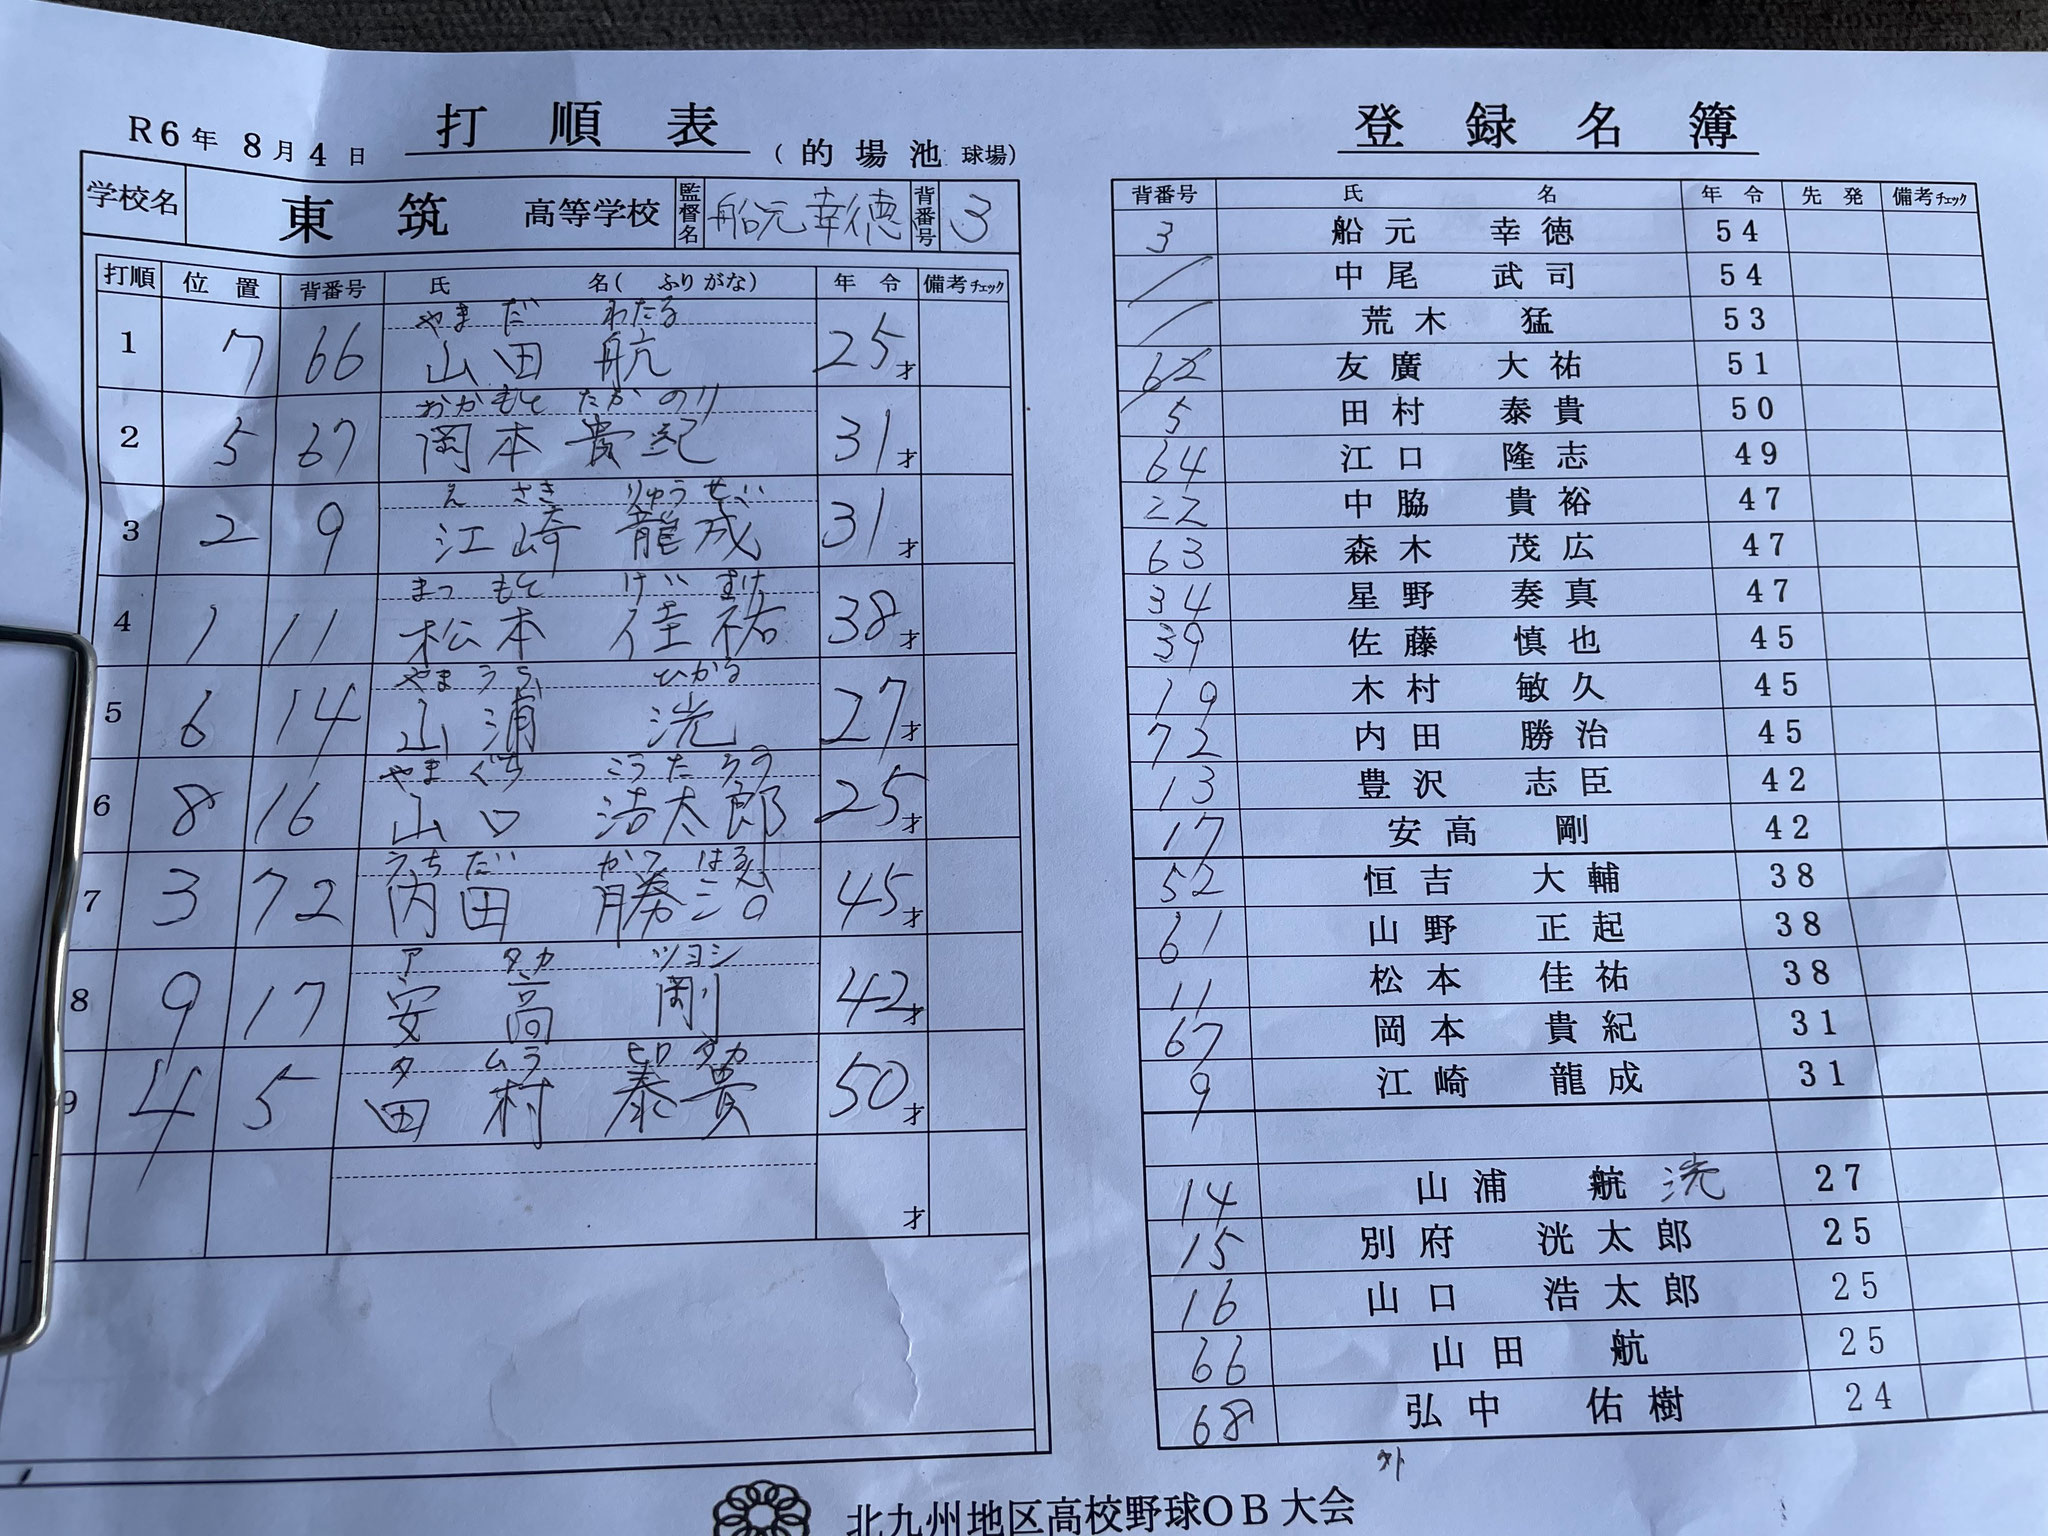 R6年 8月4日 打順表 (的場池球場)
学校名 東筑 高等学校 監督名 船元幸徳 背番号 3
打順 位置 背番号 氏名(ふりがな) 年令 備考チェック
やまだ わたる
1 7 66 山田 航 25才
おかもと たかのり
2 5 67 岡本貴紀 31才
えさき りゅうせい
3 2 9 江崎 龍成 31才
まつもと けいすけ
4 1 11 松本 佳祐 38才
やまうら ひかる
5 6 14 山浦 洸 27才
やまぐち こうたろう
6 8 16 山口 浩太郎 25才
うちだ かつはる
7 3 72 内田 勝治 45才
アタカ ツヨシ
8 9 17 安高 剛 42才
タムラ ヒロタカ
9 4 5 田村 泰貴 50才
才
登録名簿
背番号 氏名 年令 先発 備考チェック
3 船元 幸徳 54
中尾 武司 54
荒木 猛 53
62 友廣 大祐 51
5 田村 泰貴 50
64 江口 隆志 49
22 中脇 貴裕 47
63 森木 茂広 47
34 星野 奏真 47
39 佐藤 慎也 45
19 木村 敏久 45
72 内田 勝治 45
13 豊沢 志臣 42
17 安高 剛 42
52 恒吉 大輔 38
61 山野 正起 38
11 松本 佳祐 38
67 岡本 貴紀 31
9 江崎 龍成 31
14 山浦 航 洸 27
15 別府 洸太郎 25
16 山口 浩太郎 25
66 山田 航 25
68 弘中 佑樹 24
北九州地区高校野球OB大会